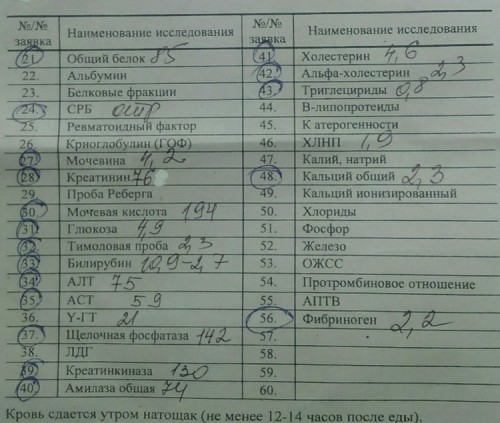 №/№ заявка Наименование исследования
21. Общий белок 85
22. Альбумин
23. Белковые фракции
24. СРБ отр
25. Ревматоидный фактор
26 Криоглобулин (ГОФ)
27. Мочевина 4,2
28. Креатинин 76
29. Проба Реберга
30. Мочевая кислота 194
31. Глюкоза 4,9
32. Тимоловая проба 2,3
33. Билирубин 10,9-2,7
34. АЛТ 75
35. АСТ 59
36. Y-ГТ 21
37. Щелочная фосфатаза 142
38. ЛДГ
39. Креатинкиназа 130
40. Амилаза общая 74
№/№ заявка Наименование исследования
41. Холестерин 4,6
42. Альфа-холестерин 2,3
43. Триглецириды 0,8
44. В-липопротеиды
45. К атерогенности
46. ХЛНП 1,9
47. Калий, натрий
48. Кальций общий 2,3
49. Кальций ионизированный
50. Хлориды
51. Фосфор
52. Железо
53. ОЖСС
54. Протромбиновое отношение
55. АПТВ
56. Фибриноген 2,2
57.
58.
59.
60.
Кровь сдается утром натощак (не менее 12-14 часов после еды).